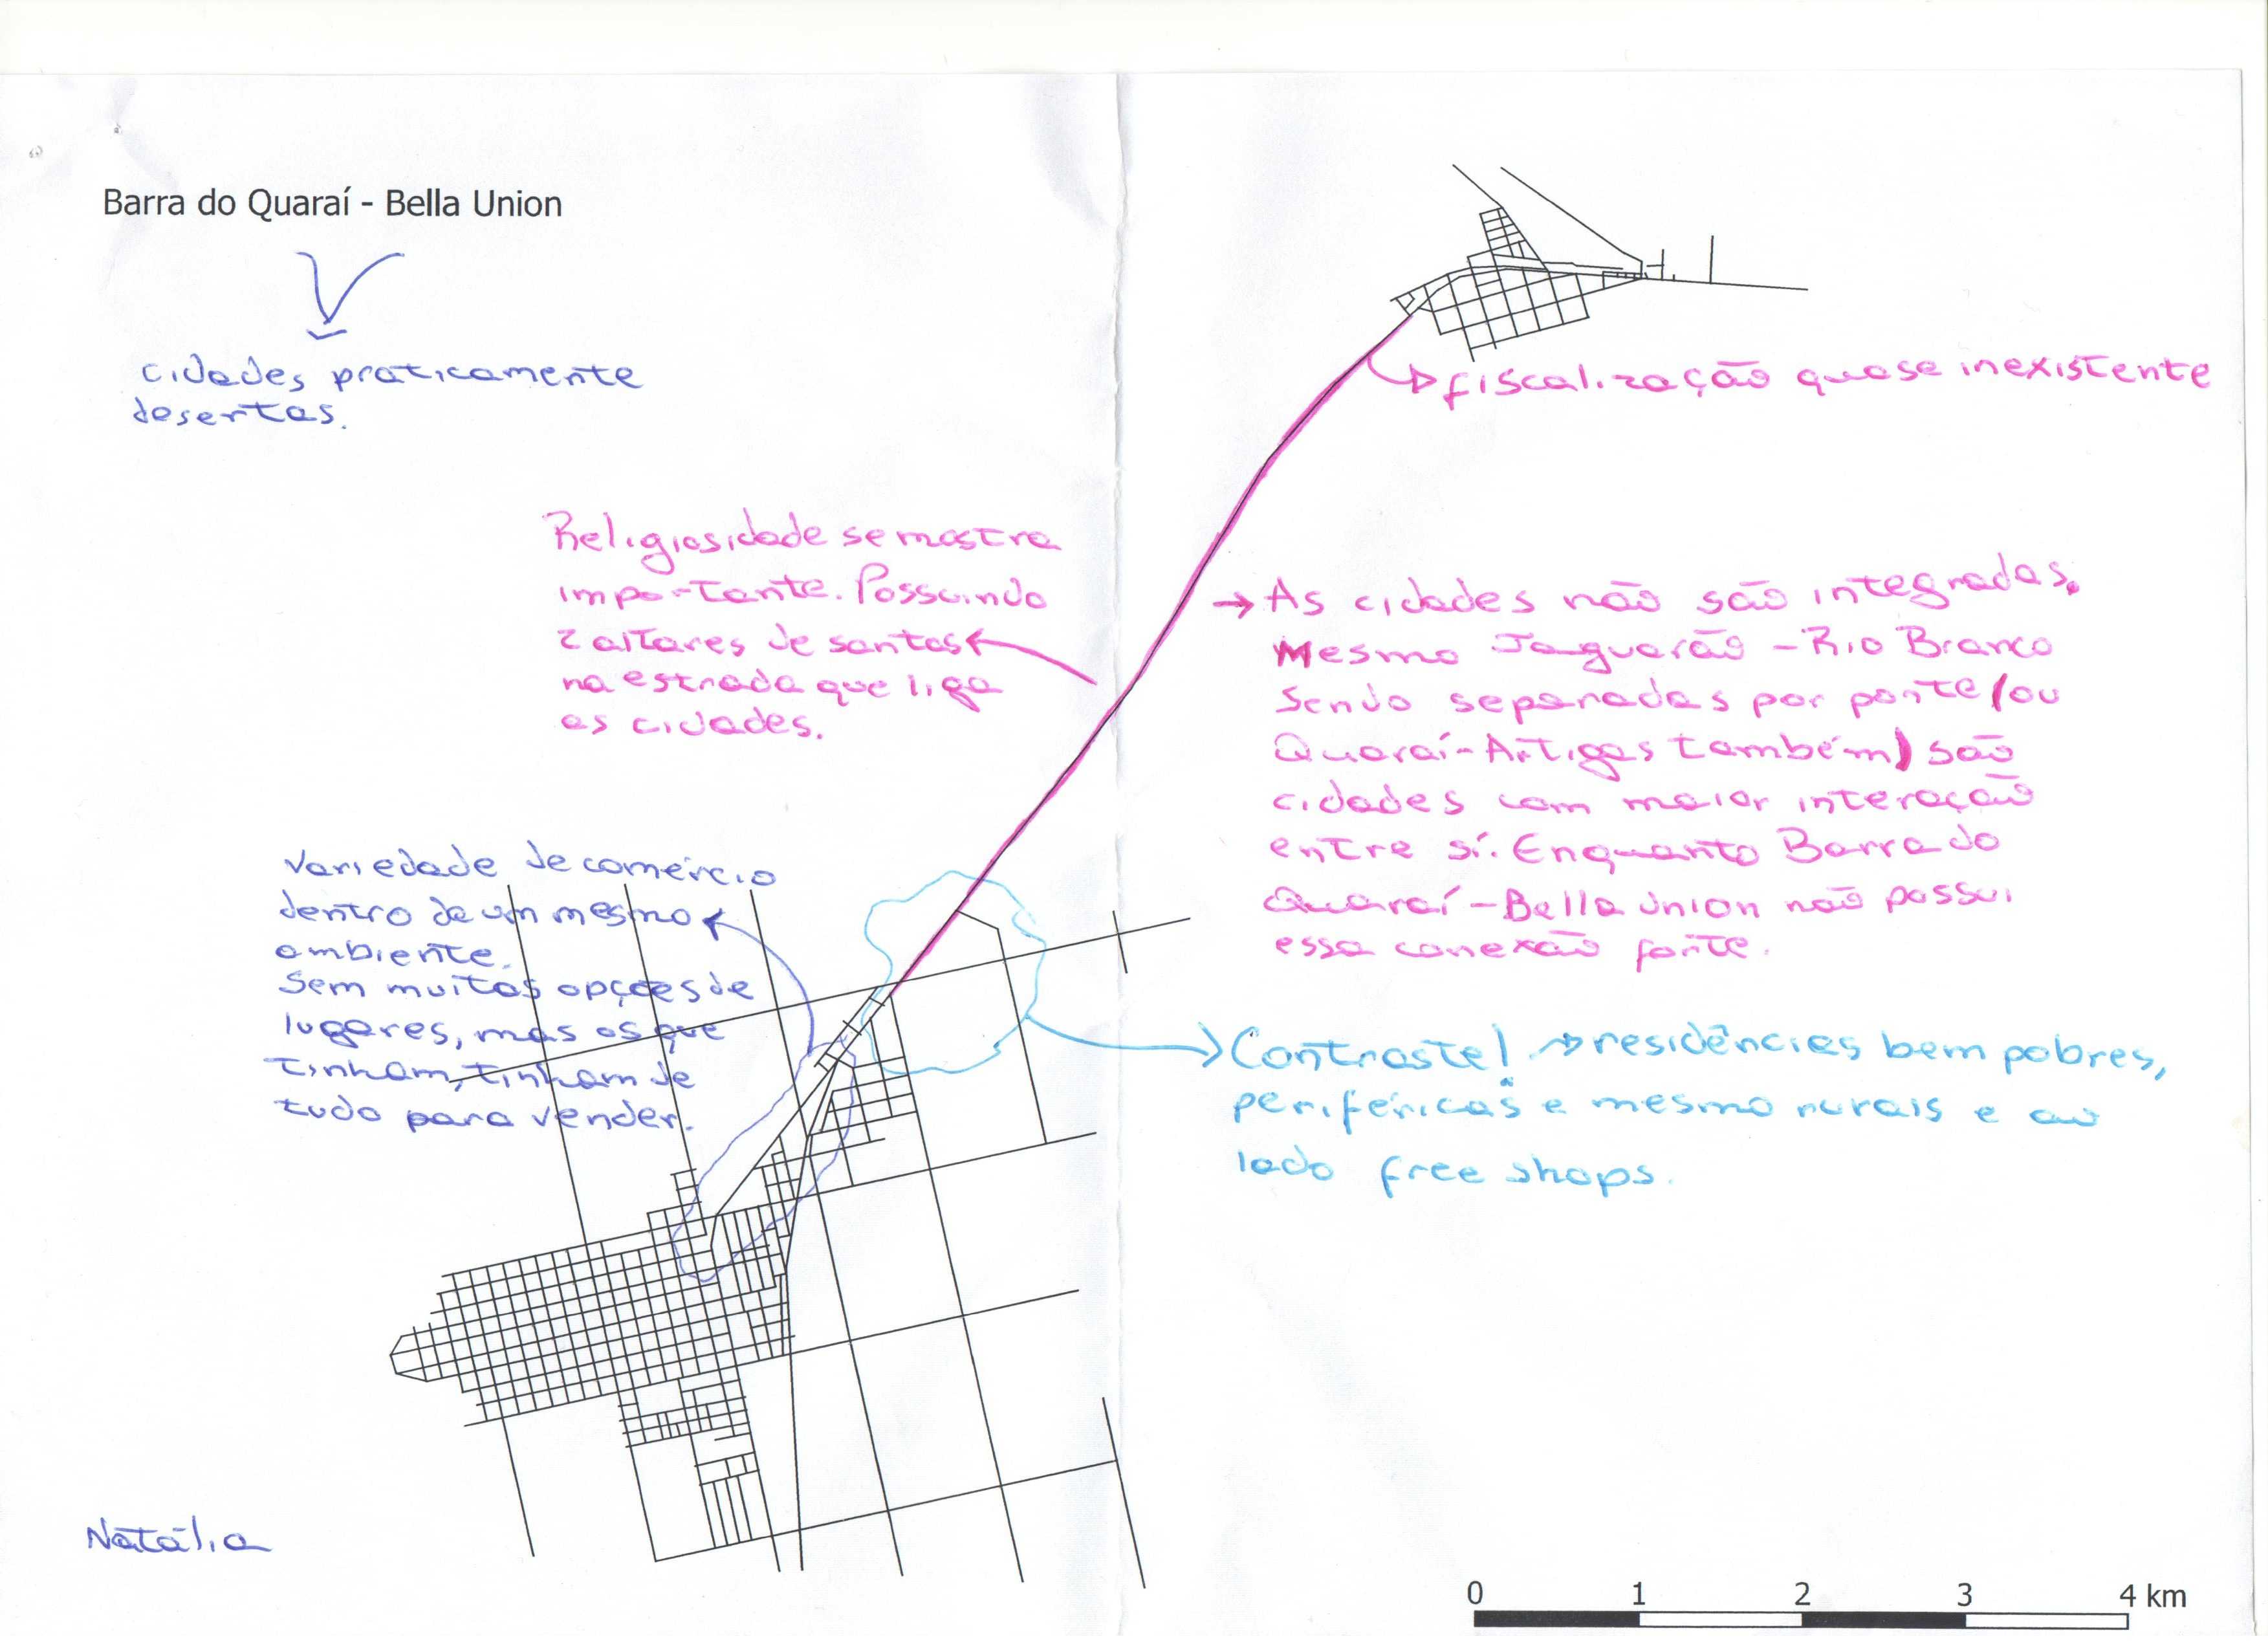 Barra do Quaraí - Bella Union
cidades praticamente
desertas.
fiscalização quase inexistente
Religiosidade se mostra
importante. Possuindo
2 altares de santos
na estrada que liga
as cidades.
→ As cidades não são integradas.
Mesmo Jaguarão - Rio Branco
sendo separadas por ponte (ou
Quaraí-Artigas também) são
cidades com maior interação
entre sí. Enquanto Barra do
Quaraí - Bella Union não possui
essa conexão forte.
Variedade de comércio
dentro de um mesmo
ambiente.
Sem muitas opções de
lugares, mas os que
tinham, tinham de
tudo para vender.
Contraste! → residências bem pobres,
periféricas e mesmo rurais e ao
lado free shops.
Natália
0 1 2 3 4 km